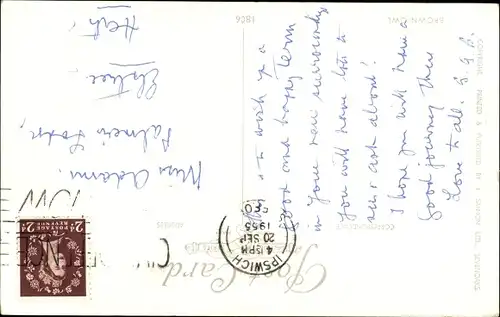 BROWN OWL
1806
COPYRIGHT
to wish you a
good and happy term
in your new surroundings
you will have lots to
see & ask about!
I hope you will have a
good journey there
Love to all.
Miss Adams.
Elstree,
Herts.
CORRESPONDENCE
ADDRESS
Post Card
IPSWICH
4 15PM
20 SEP
1955
POSTAGE
REVENUE
2½D